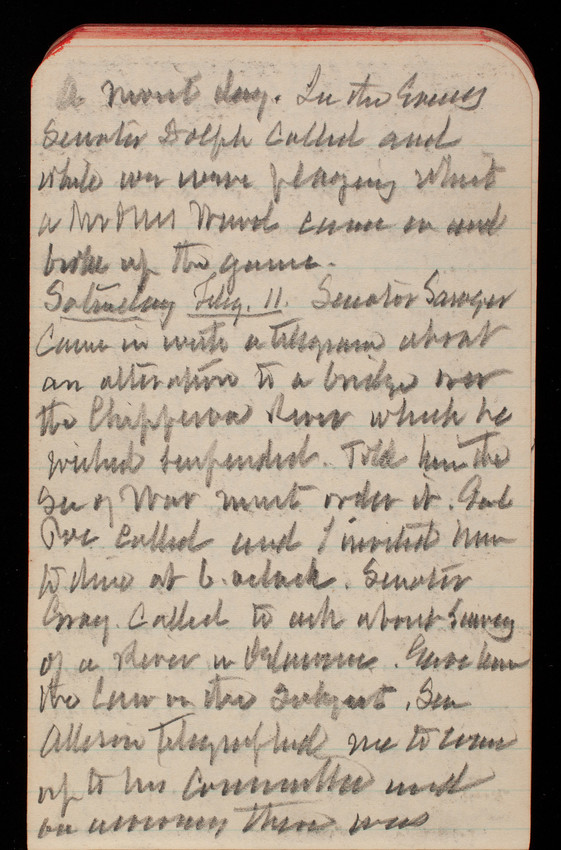 a most day. In the Evening
Senator Dolph Called and
while we were playing whist
a Mr & Mrs came in and
broke up the game.
Saturday Feby. 11. Senator Sawyer
Came in with a telegram about
an alteration to a bridge over
the Chippewa River which he
wished suspended. Told him the
Sec of War must order it. Genl
Poe Called and I invited him
to dine at 6. oclock. Senator
Gray Called to ask about Survey
of a River in Delaware. Gave him
the law on the Subject. Sen
Allison telegraphed me to come
up to his Committee and
on arriving there was